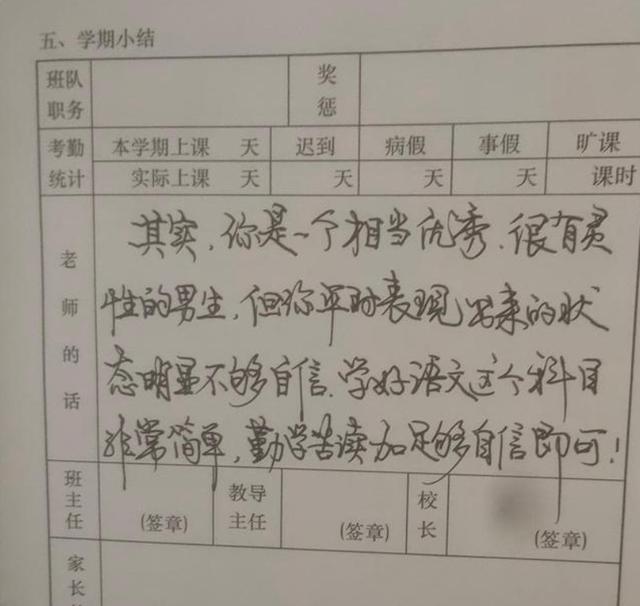 五、学期小结
班队职务 奖惩
考勤统计 本学期上课 天 迟到 病假 事假 旷课
实际上课 天 天 天 天 课时
老师的话
其实，你是一个相当优秀、很有灵
性的男生，但你平时表现出来的状
态明显不够自信，学好语文这个科目
非常简单，勤学苦读加足够自信即可！
班主任 (签章) 教导主任 (签章) 校长 (签章)
家长